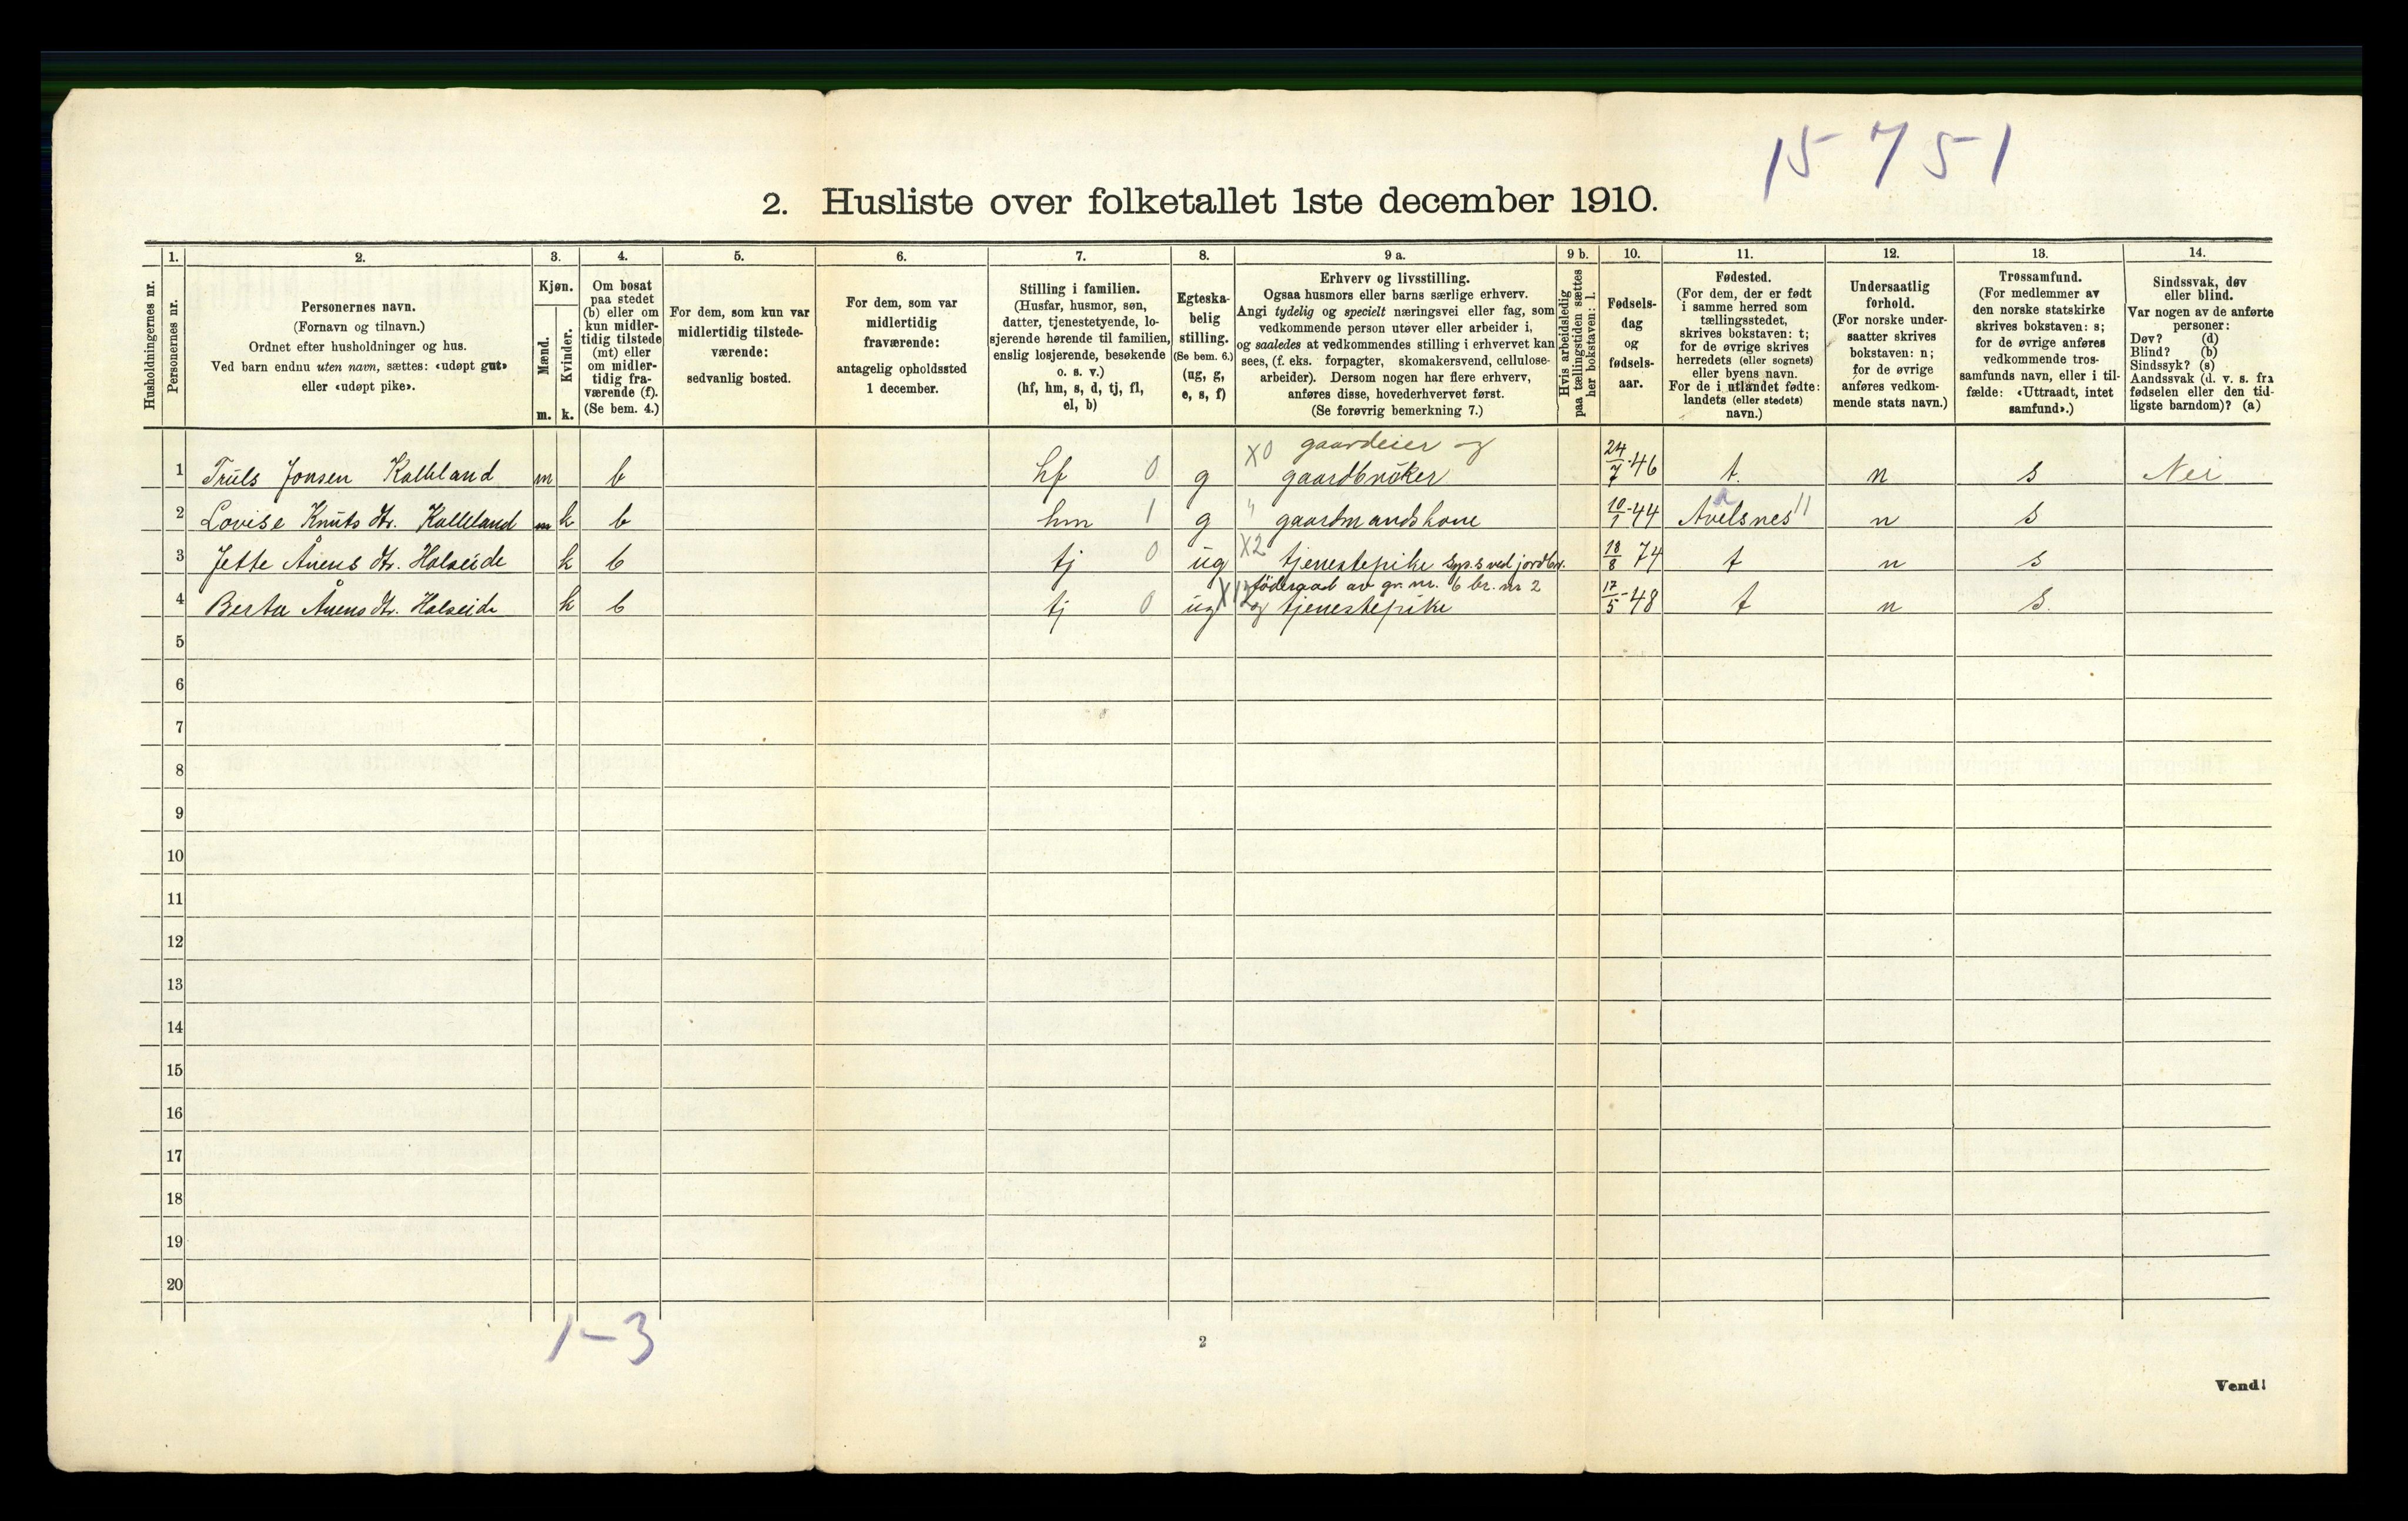 15 7 51
2. Husliste over folketallet 1ste december 1910.
Husholdningernes nr.
1.
Personernes nr.
2.
Personernes navn.
(Fornavn og tilnavn.)
Ordnet efter husholdninger og hus.
Ved barn endnu uten navn, sættes: «udøpt gut»
eller «udøpt pike».
3.
Kjøn.
Mænd.
m.
Kvinder.
k.
4.
Om bosat
paa stedet
(b) eller om
kun midler-
tidig tilstede
(mt) eller
om midler-
tidig fra-
værende (f).
(Se bem. 4.)
5.
For dem, som kun var
midlertidig tilstede-
værende:
sedvanlig bosted.
6.
For dem, som var
midlertidig
fraværende:
antagelig opholdssted
1 december.
7.
Stilling i familien.
(Husfar, husmor, søn,
datter, tjenestetyende, lo-
sjerende hørende til familien,
enslig losjerende, besøkende
o. s. v.)
(hf, hm, s, d, tj, fl,
el, b)
8.
Egteska-
belig
stilling.
(Se bem. 6.)
(ug, g,
e, s, f)
9 a.
Erhverv og livsstilling.
Ogsaa husmors eller barns særlige erhverv.
Angi tydelig og specielt næringsvei eller fag, som
vedkommende person utøver eller arbeider i,
og saaledes at vedkommendes stilling i erhvervet kan
sees, (f. eks. forpagter, skomakersvend, cellulose-
arbeider). Dersom nogen har flere erhverv,
anføres disse, hovederhvervet først.
(Se forøvrig bemerkning 7.)
9 b.
Hvis arbeidsledig
paa tællingstiden sættes
her bokstaven: l.
10.
Fødsels-
dag
og
fødsels-
aar.
11.
Fødested.
(For dem, der er født
i samme herred som
tællingsstedet,
skrives bokstaven: t;
for de øvrige skrives
herredets (eller sognets)
eller byens navn.
For de i utlandet fødte:
landets (eller stedets)
navn.)
12.
Undersaatlig
forhold.
(For norske under-
saatter skrives
bokstaven: n;
for de øvrige
anføres vedkom-
mende stats navn.)
13.
Trossamfund.
(For medlemmer av
den norske statskirke
skrives bokstaven: s;
for de øvrige anføres
vedkommende tros-
samfunds navn, eller i til-
fælde: «Uttraadt, intet
samfund».)
14.
Sindssvak, døv
eller blind.
Var nogen av de anførte
personer:
Døv? (d)
Blind? (b)
Sindssyk? (s)
Aandssvak (d. v. s. fra
fødselen eller den tid-
ligste barndom)? (a)
X0 gaardeier og
1 Truls Jonsen Kalleland m b hf 0 g gaardbruker 24/7-46 t. n s Nei
2 Lovise Knuts dtr. Kalleland m k b hm 1 g " gaardmandskone 10/1-44 Avelsnes 11 n s
3 Jette Ånens dtr. Holseide k b tj 0 ug X2 tjenestepike sys. s ved jordbr. 18/8 74 t n s
föderaad av gr. nr. 6 br. nr 2
4 Berta Ånens dtr. Holseide k b tj 0 ug X12 og tjenestepike 17/5-48 t n s.
5
6
7
8
9
10
11
12
13
14
15
16
17
18
19
20
1-3
2
Vend!